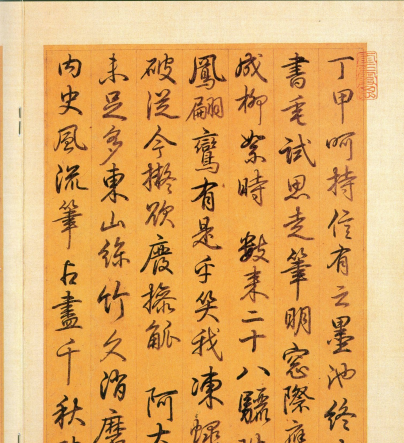 丁甲呵持信有之墨池終
書試思走筆明窗際
成柳絮時 數来二十八驪
鳳翩鸞有是乎笑我凍蠅
破從今擬欲廢操觚 阿大
未足多東山絲竹久消磨
内史風流筆占盡千秋